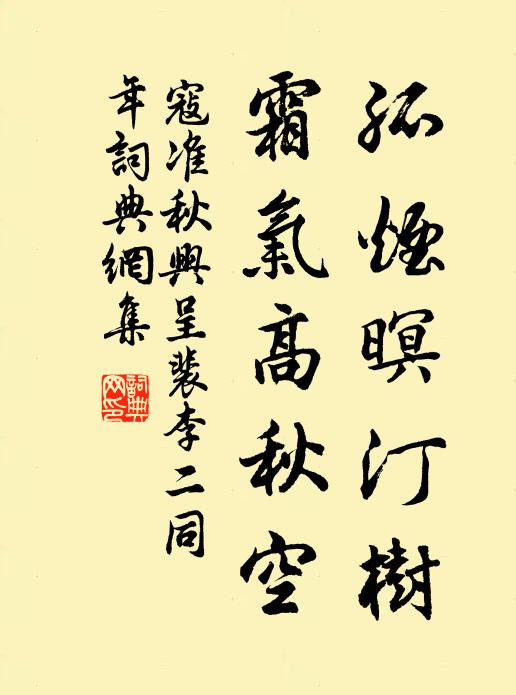 孤煙暝汀樹
霜氣高秋空
寇准秋興呈裴李二同
年詞典網集
詞典
网印